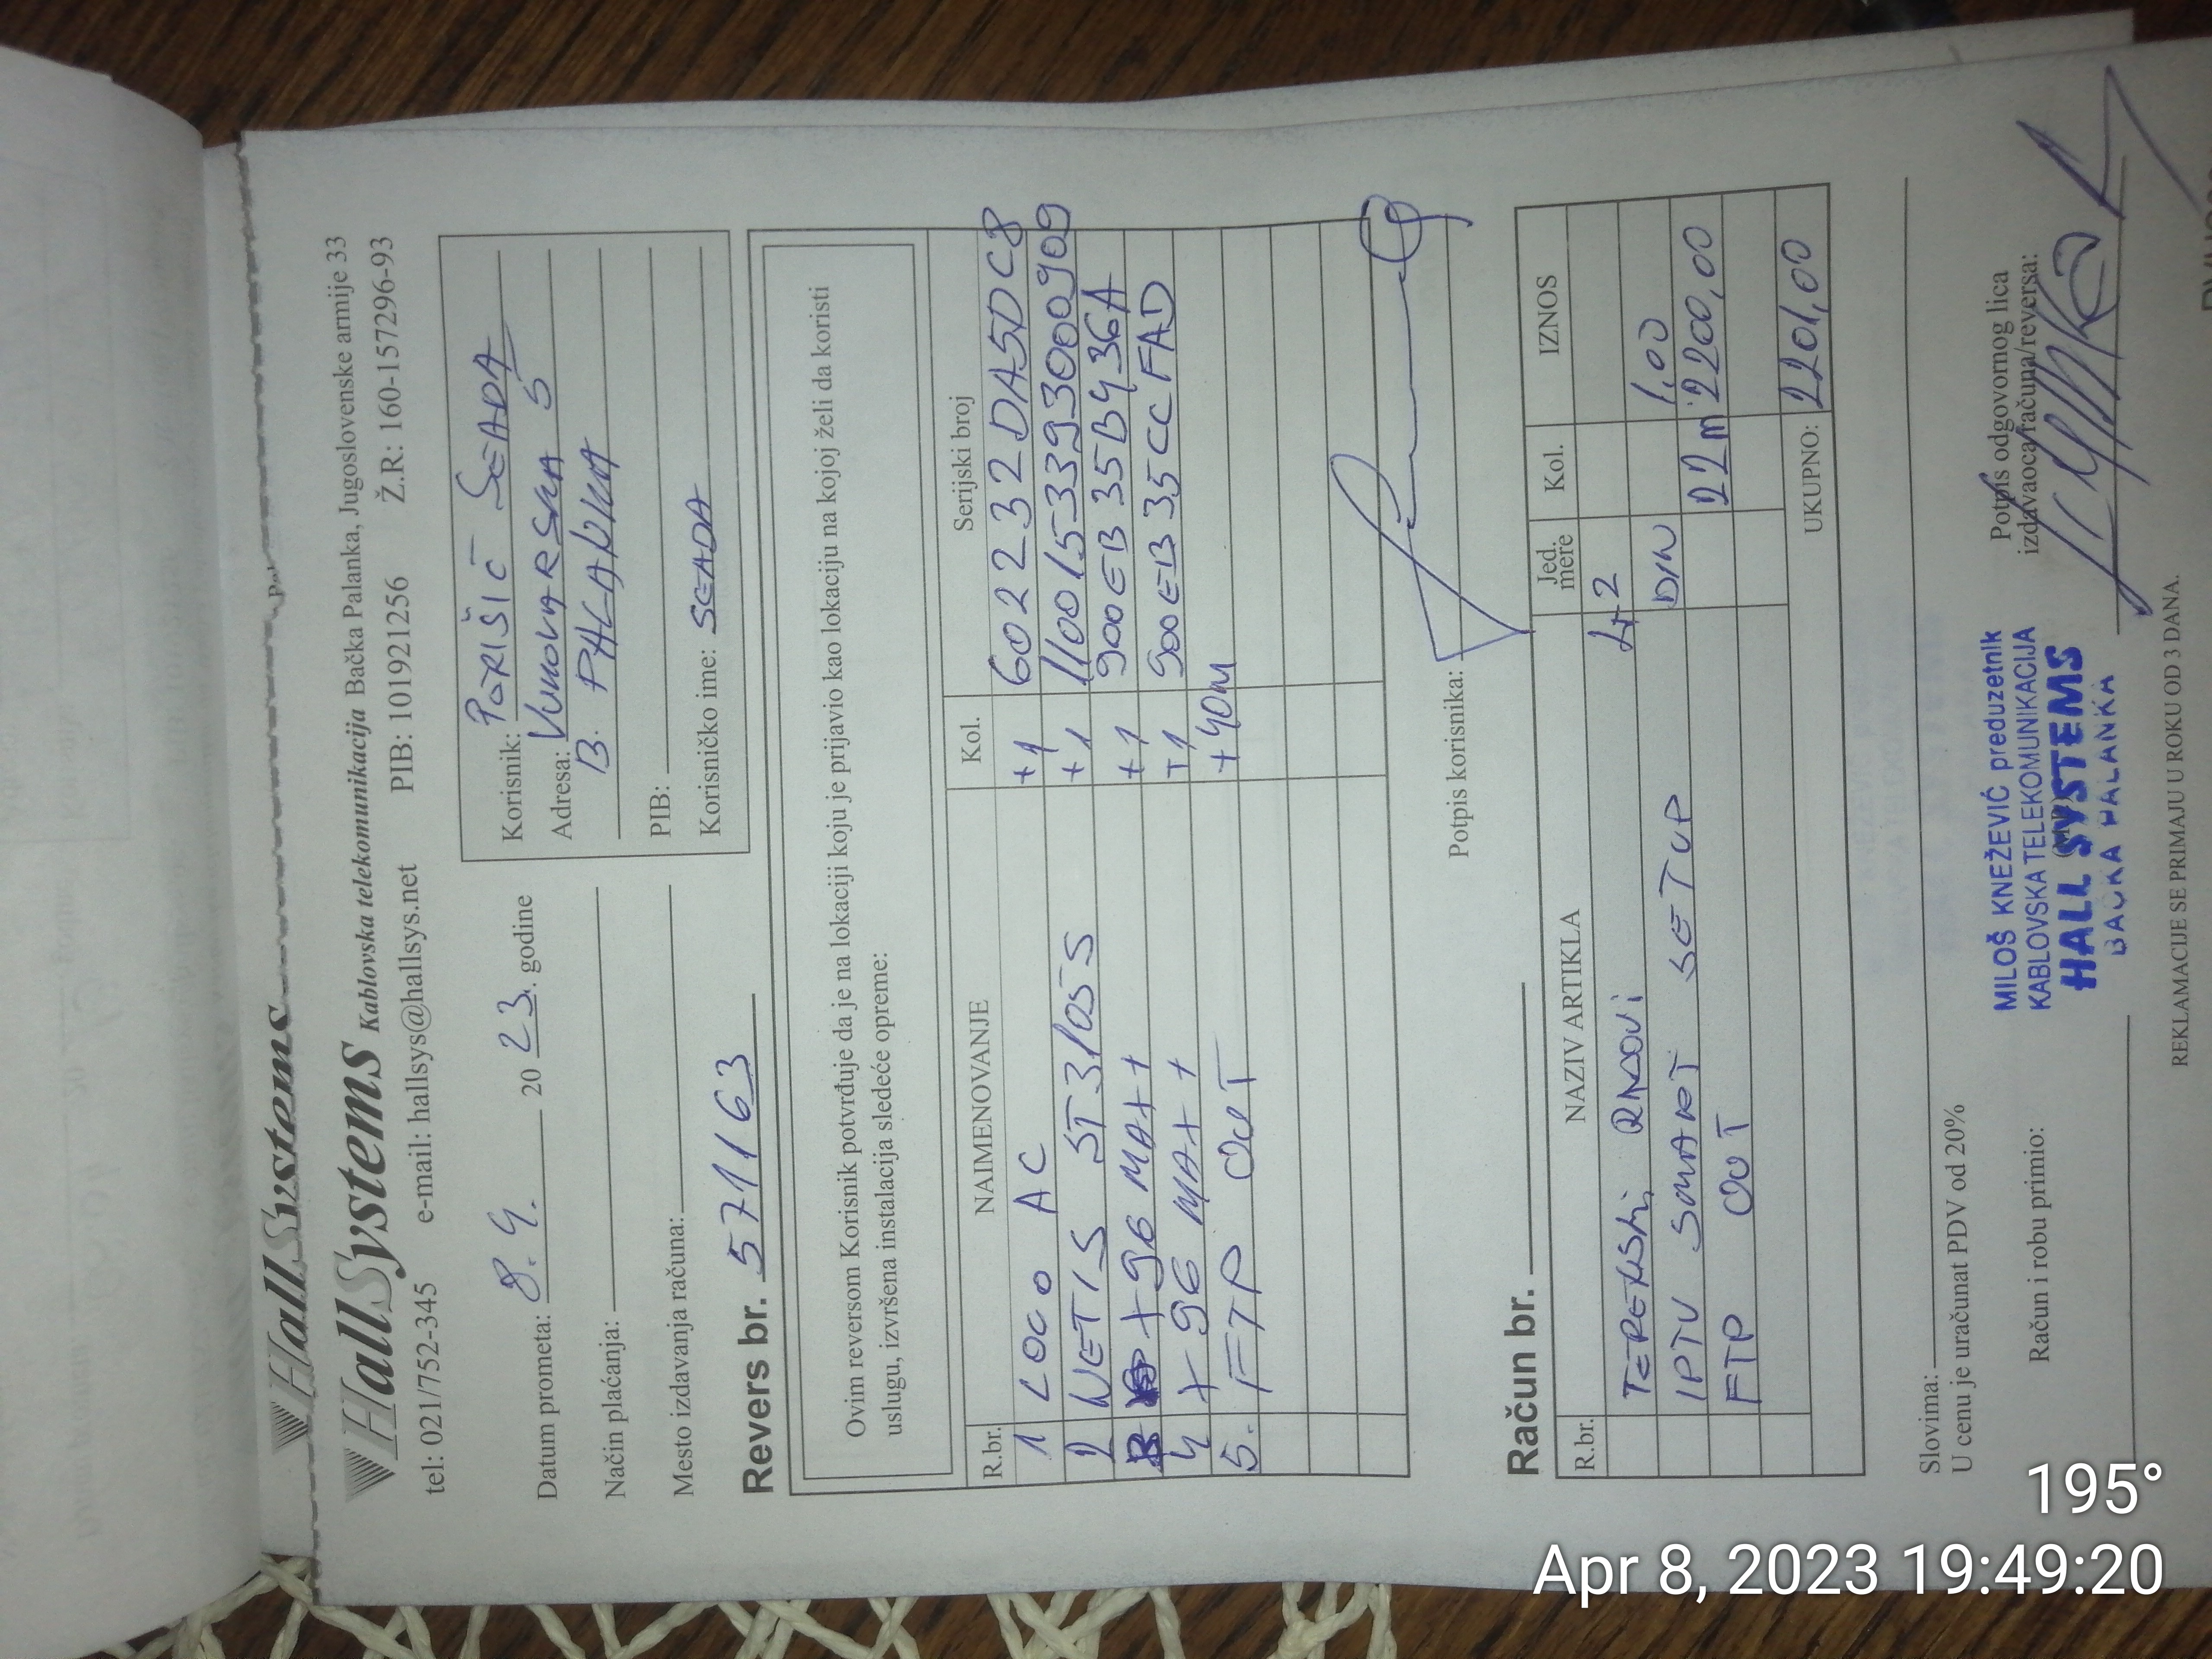 HallSystems
HallSystems Kablovska telekomunikacija Bačka Palanka, Jugoslovenske armije 33
tel: 021/752-345 e-mail: hallsys@hallsys.net PIB: 101921256 Ž.R: 160-157296-93
Datum prometa: 8.4. 20 23. godine
Način plaćanja:
Mesto izdavanja računa:
Korisnik: PORIŠIĆ SEADA
Adresa: VUKOVARSKA 5
B. PALANKA
PIB:
Korisničko ime: SEADA
Revers br. 571163
Ovim reversom Korisnik potvrđuje da je na lokaciji koju je prijavio kao lokaciju na kojoj želi da koristi
uslugu, izvršena instalacija sledeće opreme:
R.br. NAIMENOVANJE Kol. Serijski broj
1 LOCO AC +1 602232DA5DC8
2 NETIS ST3105S +1 1100153393000909
3 X96 MAX+ +1 900EB35B436A
4 X96 MAX+ +1 900EB35CCFAD
5. FTP OUT +40m
Potpis korisnika:
Račun br.
R.br. NAZIV ARTIKLA Jed. mere Kol. IZNOS
TERENSKI RADOVI 2
IPTV SMART SETUP DIN 1,00
FTP OUT 22m 2200,00
UKUPNO: 2201,00
Slovima:
U cenu je uračunat PDV od 20%
Račun i robu primio:
MILOŠ KNEŽEVIĆ preduzetnik
KABLOVSKA TELEKOMUNIKACIJA
HALL SYSTEMS
BAČKA PALANKA
Potpis odgovornog lica
izdavaoca računa/reversa:
REKLAMACIJE SE PRIMAJU U ROKU OD 3 DANA.
195°
Apr 8, 2023 19:49:20